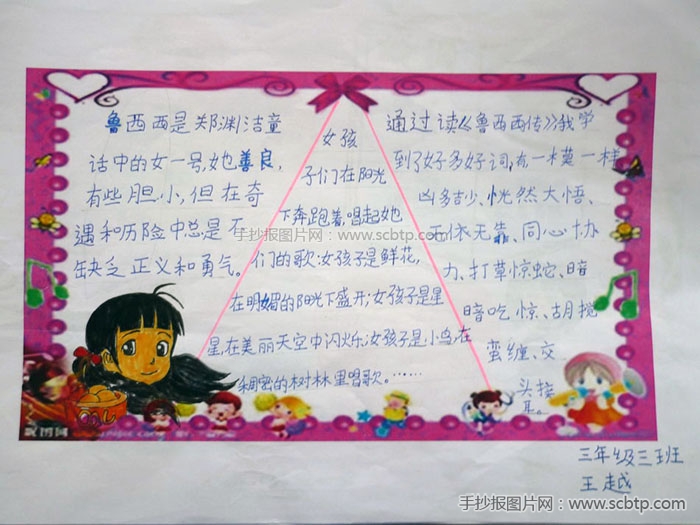 鲁西西是郑渊洁童
话中的女一号,她善良,
有些胆小,但在奇
遇和历险中总是不
缺乏正义和勇气。
女孩
子们在阳光
下奔跑着,唱起她
们的歌:女孩子是鲜花,
在明媚的阳光下盛开;女孩子是星
星,在美丽天空中闪烁;女孩子是小鸟,在
稠密的树林里唱歌。……
通过读《鲁西西传》,我学
到了好多好词,有一模一样
凶多吉少、恍然大悟、
无依无靠、同心协
力、打草惊蛇、暗
暗吃惊、胡搅
蛮缠、交
头接
耳。
手抄报图片网:www.scbtp.com
三年级三班
王越
手抄报图片网:www.scbtp.com